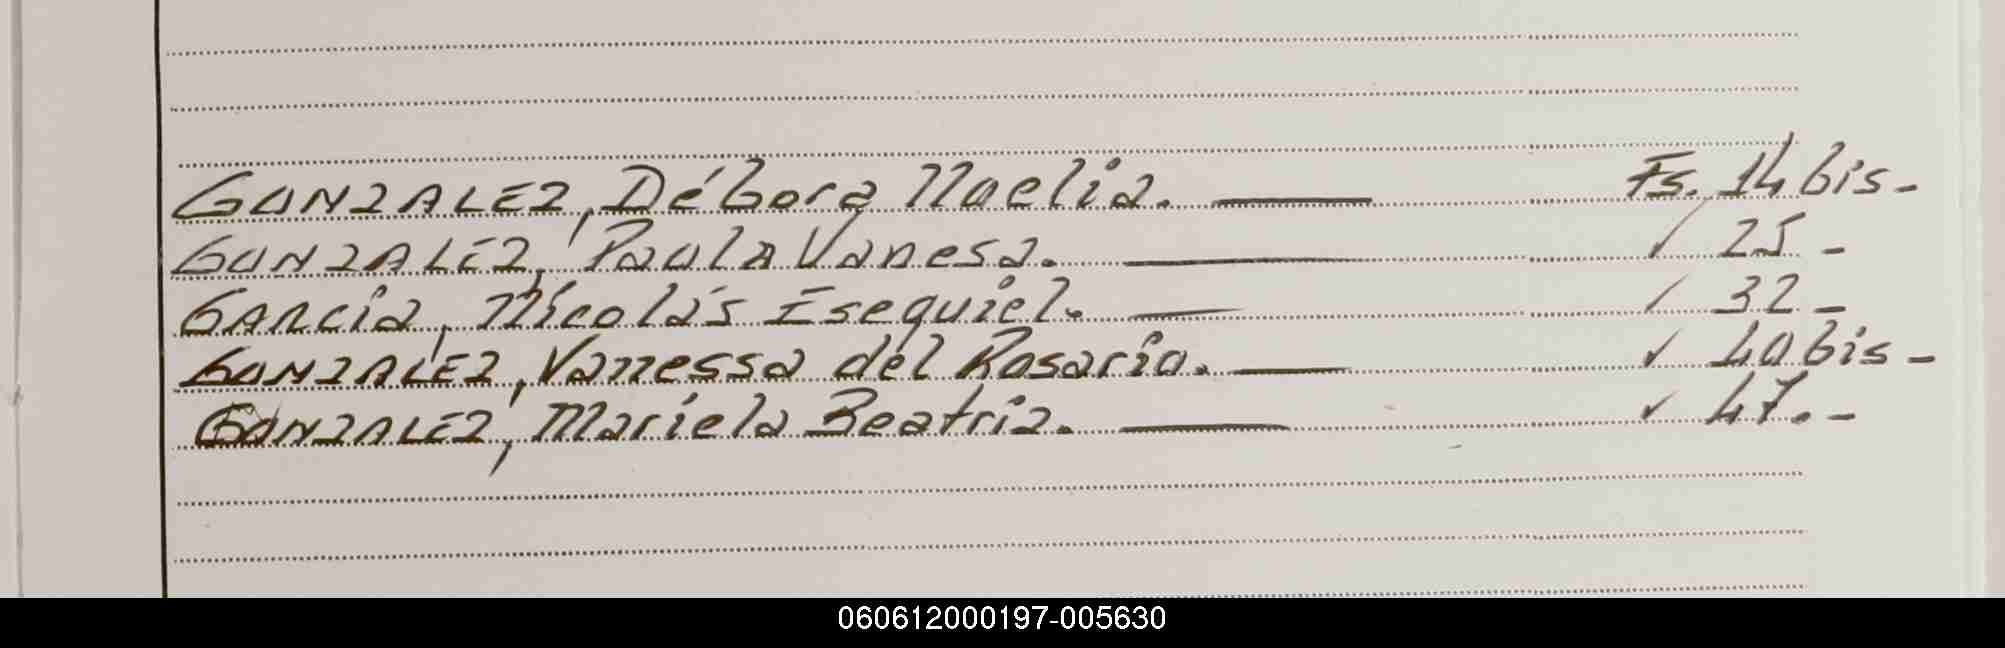 GONZALEZ, Débora Noelia. — Fs. 14 bis.-
GONZALEZ, Paula Vanesa. — ✓ 25 -
GARCIA, Nícolás Esequiel. — ✓ 32 -
GONZALEZ, Vanessa del Rosario. — ✓ 40 bis -
GONZALEZ, Mariela Beatriz. — ✓ 47.-
060612000197-005630